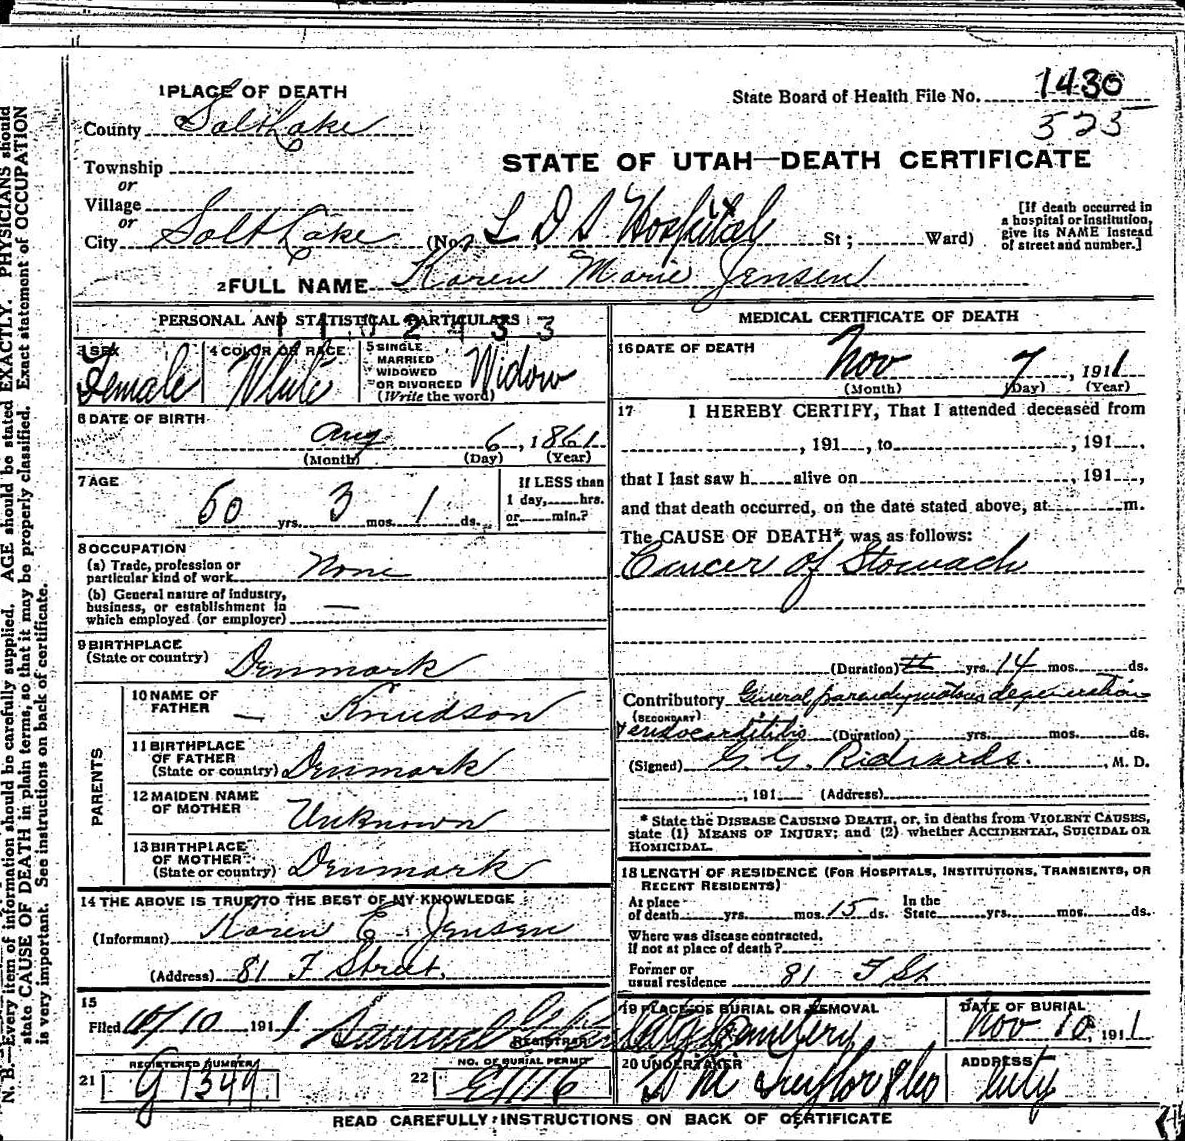 1 PLACE OF DEATH
State Board of Health File No. 1430
525
County Salt Lake
STATE OF UTAH—DEATH CERTIFICATE
Township
or
Village
or
City Salt Lake (No. L D S Hospital St; Ward)
[If death occurred in a hospital or institution, give its NAME instead of street and number.]
2 FULL NAME Karen Marie Jensen
PERSONAL AND STATISTICAL PARTICULARS
3 SEX Female
4 COLOR OR RACE White
5 SINGLE MARRIED WIDOWED OR DIVORCED (Write the word) Widow
6 DATE OF BIRTH
Aug 6, 1861
(Month) (Day) (Year)
7 AGE
50 yrs. 3 mos. 1 ds.
If LESS than 1 day, hrs. or min.?
8 OCCUPATION
(a) Trade, profession or particular kind of work None
(b) General nature of industry, business, or establishment in which employed (or employer) —
9 BIRTHPLACE
(State or country) Denmark
PARENTS
10 NAME OF FATHER — Knudson
11 BIRTHPLACE OF FATHER (State or country) Denmark
12 MAIDEN NAME OF MOTHER Unknown
13 BIRTHPLACE OF MOTHER (State or country) Denmark
14 THE ABOVE IS TRUE TO THE BEST OF MY KNOWLEDGE
(Informant) Karen E. Jensen
(Address) 81 F Street.
15
Filed 10, 1911 Samuel
REGISTRAR
21 REGISTERED NUMBER G 1349
22 NO. OF BURIAL PERMIT E1116
MEDICAL CERTIFICATE OF DEATH
16 DATE OF DEATH
Nov 7, 1911
(Month) (Day) (Year)
17 I HEREBY CERTIFY, That I attended deceased from
, 191 , to , 191 ,
that I last saw h alive on , 191 ,
and that death occurred, on the date stated above, at m.
The CAUSE OF DEATH* was as follows:
Cancer of Stomach
(Duration) yrs. 14 mos. ds.
Contributory General degeneration
(SECONDARY)
& endocarditis (Duration) yrs. mos. ds.
(Signed) G. G. Richards. , M. D.
, 191 (Address)
* State the DISEASE CAUSING DEATH, or, in deaths from VIOLENT CAUSES,
state (1) MEANS OF INJURY; and (2) whether ACCIDENTAL, SUICIDAL OR
HOMICIDAL.
18 LENGTH OF RESIDENCE (FOR HOSPITALS, INSTITUTIONS, TRANSIENTS, OR
RECENT RESIDENTS)
At place of death yrs. mos. 15 ds. In the State yrs. mos. ds.
Where was disease contracted,
If not at place of death?
Former or usual residence 81 F St
19 PLACE OF BURIAL OR REMOVAL City Cemetery
DATE OF BURIAL Nov 10, 1911
20 UNDERTAKER S M Taylor & Co
ADDRESS City
READ CAREFULLY INSTRUCTIONS ON BACK OF CERTIFICATE
N. B.—Every item of information should be carefully supplied. AGE should be stated EXACTLY. PHYSICIANS should
state CAUSE OF DEATH in plain terms, so that it may be properly classified. Exact statement of OCCUPATION
is very important. See instructions on back of certificate.